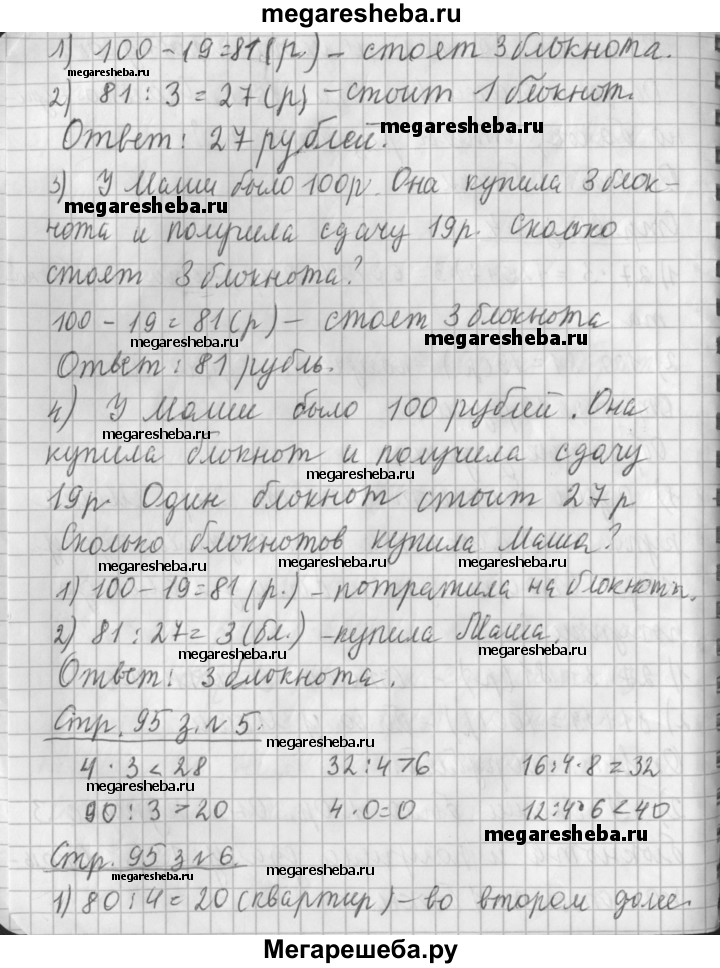 megaresheba.ru
1) 100 - 19 = 81 (р.) - стоят 3 блокнота.
megaresheba.ru
2) 81 : 3 = 27 (р) - стоит 1 блокнот.
megaresheba.ru
Ответ: 27 рублей.
3) У Маши было 100р. Она купила 3 блок-
megaresheba.ru
нота и получила сдачу 19р. Сколько
стоят 3 блокнота?
100 - 19 = 81 (р) - стоят 3 блокнота
megaresheba.ru
Ответ: 81 рубль.
4) У Маши было 100 рублей. Она
megaresheba.ru
купила блокнот и получила сдачу
megaresheba.ru
19р. Один блокнот стоит 27 р
Сколько блокнотов купила Маша?
megaresheba.ru megaresheba.ru
1) 100 - 19 = 81 (р.) - потратила на блокноты.
2) 81 : 27 = 3 (бл.) - купила Маша.
megaresheba.ru megaresheba.ru
Ответ: 3 блокнота.
Стр. 95 з. № 5.
megaresheba.ru
4 · 3 < 28 32 : 4 > 6 16 : 4 · 8 = 32
megaresheba.ru
90 : 3 > 20 4 · 0 = 0 12 : 4 · 6 < 40
megaresheba.ru
Стр. 95 з № 6.
megaresheba.ru megaresheba.ru
1) 80 : 4 = 20 (квартир) - во втором доме.
Мегарешеба.ру